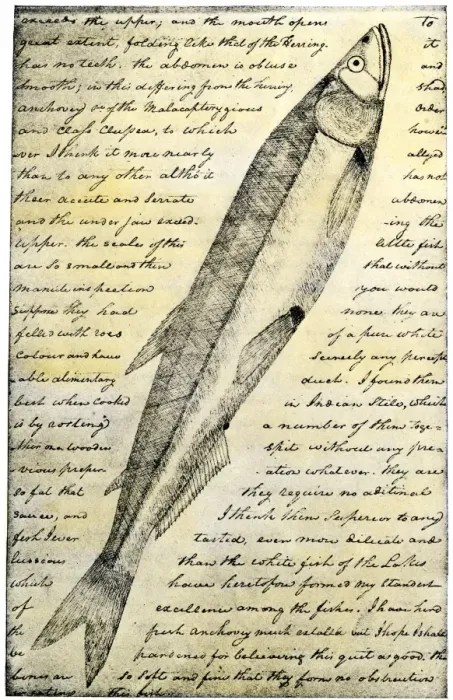 exceeds the upper; and the mouth opens To
great extent, folding like that of the Herring. it
has no teeth. the abdomen is obtuse and
smooth; in this differing from the herring, shad
anchovy &c of the Malacopterygious Order
and Class Clupea, to which howe
ver I think it more nearly allyed
than to any other altho' it has not
their accute and serrate abdomen
and the under jaw exceed- -ing the
upper. the scales of this little fish
are so small and thin that without
manute inspection you would
suppose they had none. they are
filled with roes of a pure white
colour and have scercely any percept
able alimentary duct. I found them
best when cooked in Indian stile, which
is by rosting a number of them toge-
ther on a wooden spit without any pre
vious preper- -ation whatever. they are
so fat that they require no aditional
sauce, and I think them superior to any
fish I ever tasted, even more dilicate and
lussious than the white fish of the Lakes
which have heretofore formed my standart
of excellence among the fishes. I have herd
the fresh anchovy much extoll'd but I hope I shall
be pardoned for beleiving this quit as good. the
bones are so soft and fine that they form no obstruction
this fish